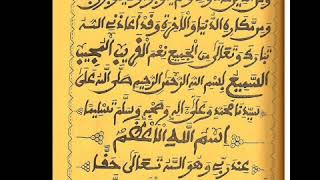 ومن مكاره الدنيا والاخرة وقد اعاذني الله
تبارك وتعالى من الجميع نعم القريب المجيب
السميع بسم الله الرحمن الرحيم صلى الله على
سيدنا محمد وعلى اله وصحبه وسلم تسليما
اسم الله الاعظم
عند ربي وهو الله تعالى حقا